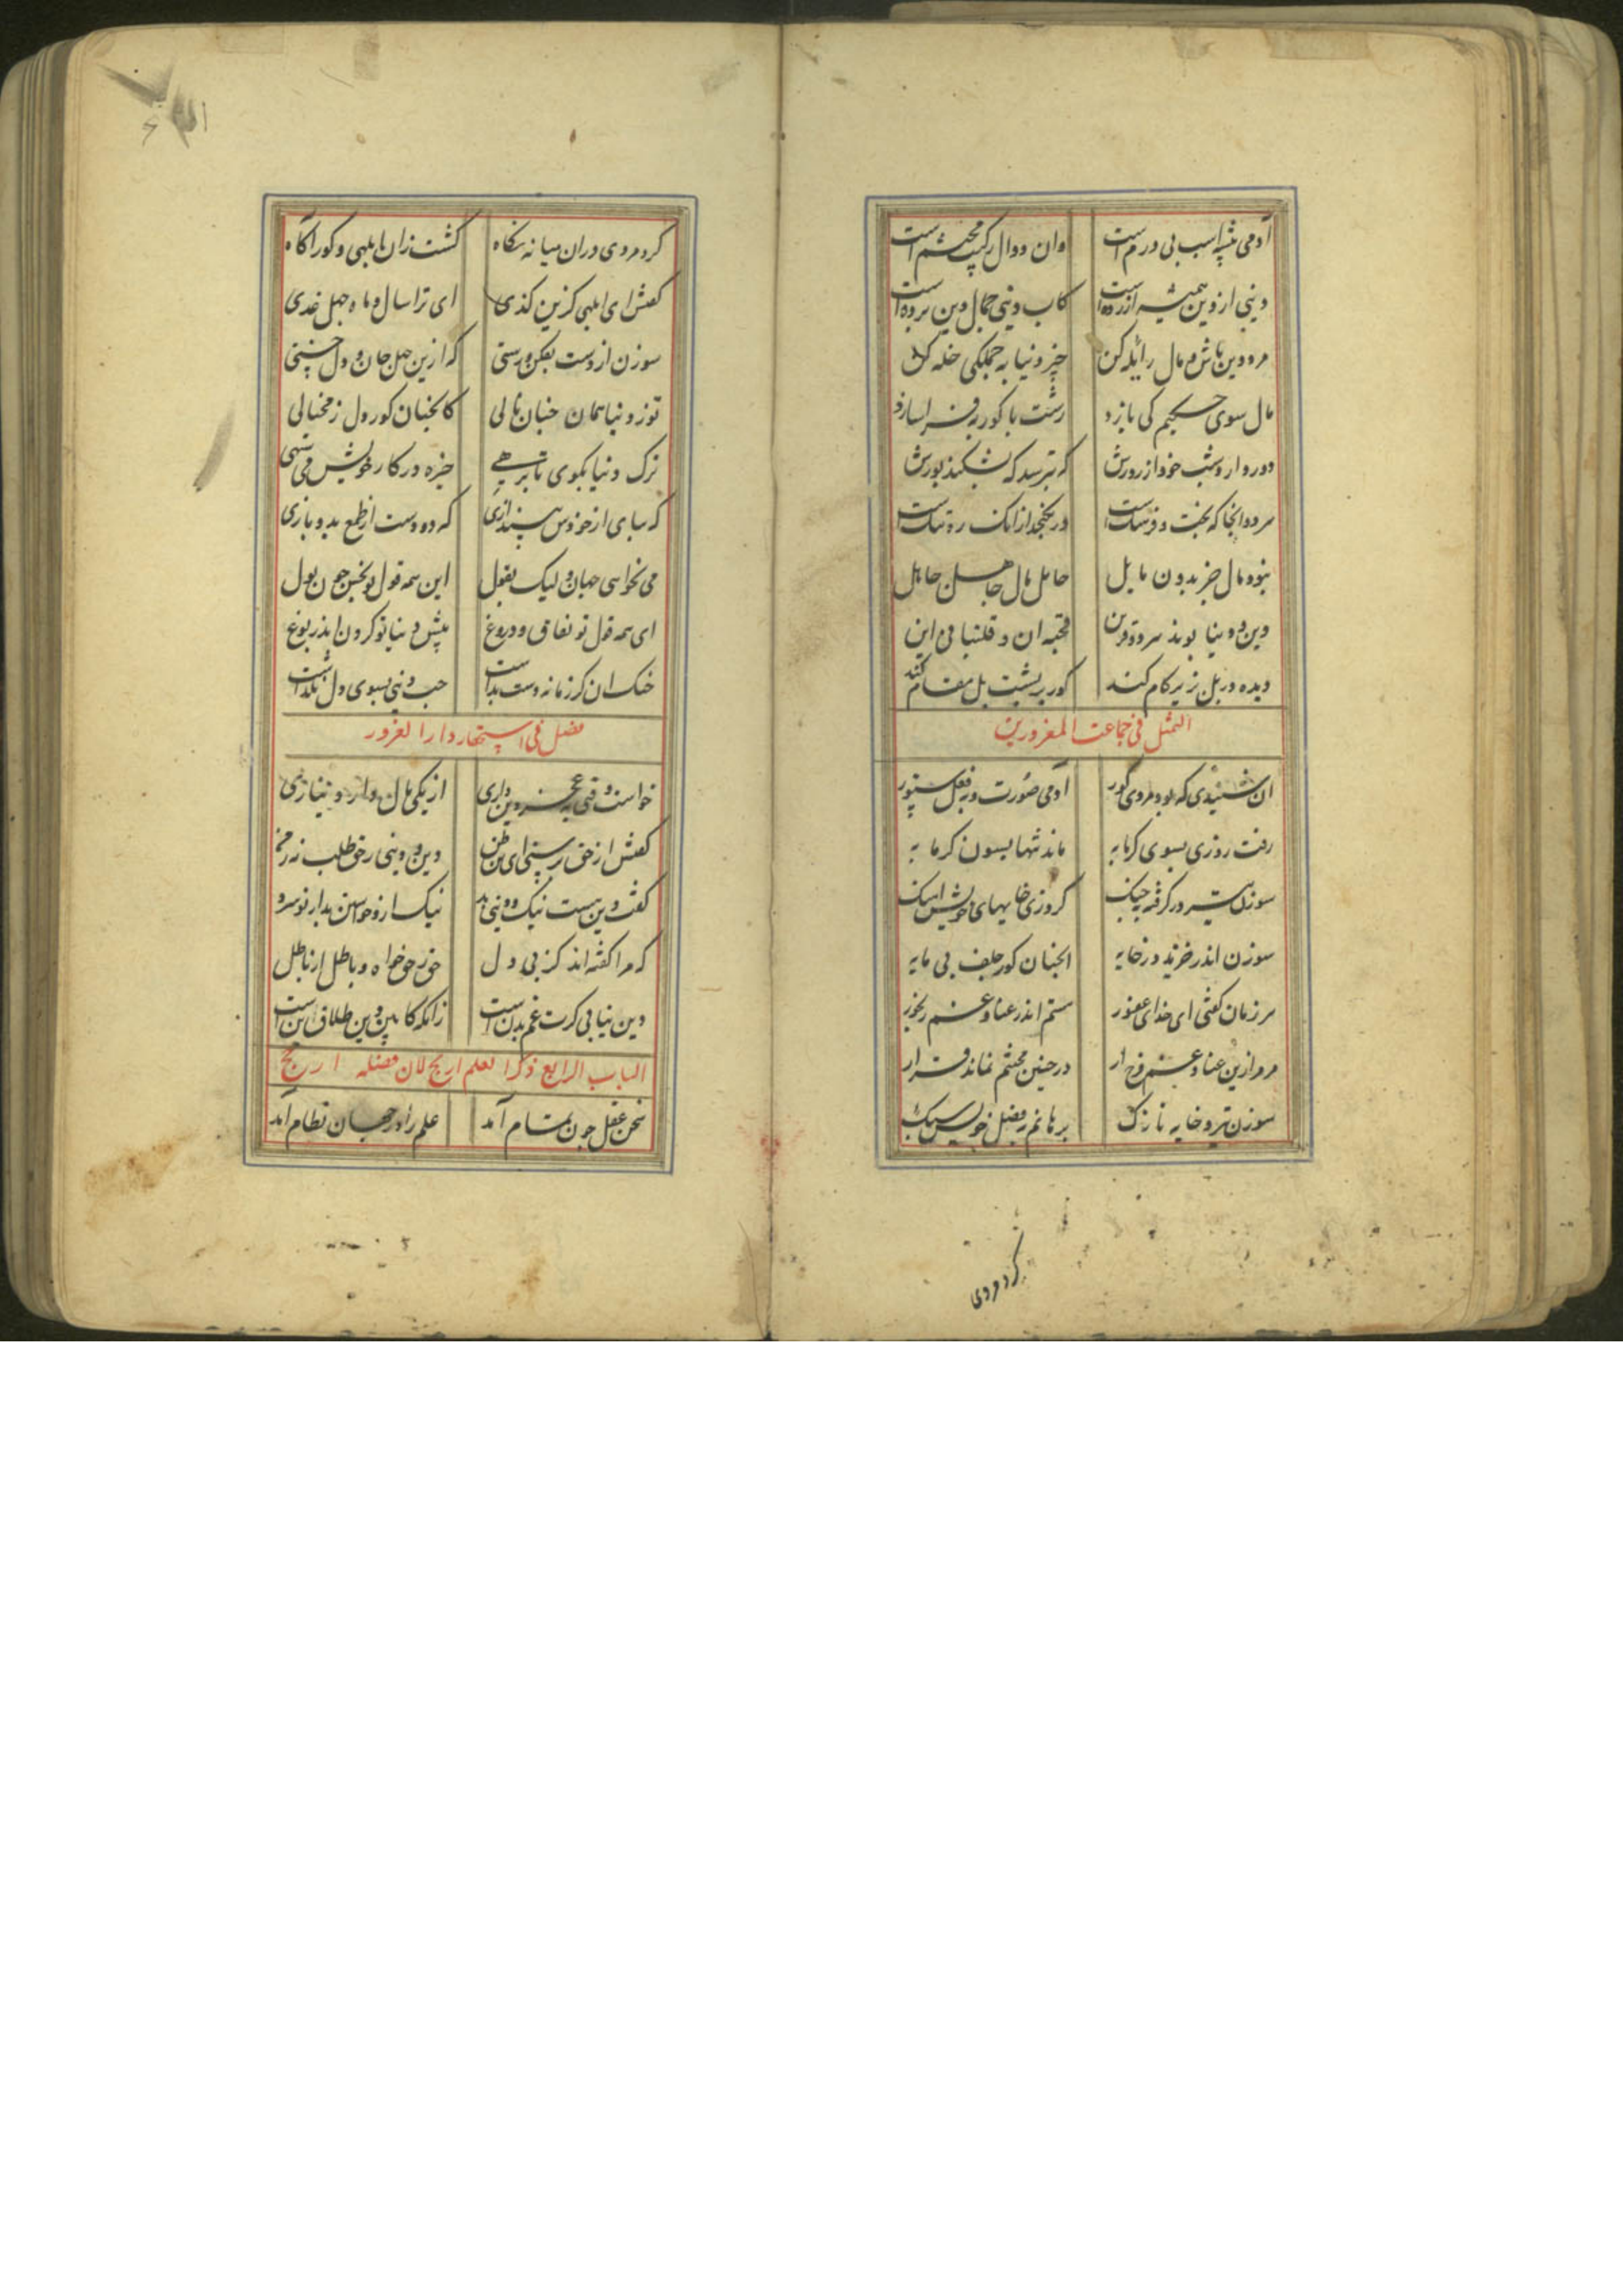 آدمی پیشه اسب بی درم است وان دوال رکیب محتشم است
دینی از دین همیشه آزرده است کاب دینی جمال دین برده است
مرد دین باش و مال را یله کن خیز و دنیا به جملگی خله کن
مال سوی حکیم کی یازد رشت با کور به فراسازد
دور دار وشب خود از زورش که بترسد که بشکند پورش
سرد و آنجا که بخت و فر
نبود مال جز بدون مایل حامل مال جاهلست حامل
دین و دنیا بوند قحبه ان و قلتبانی این
دیده در پل زیر کام کند کور بر پشت پل مقام کند
التمثل فی جماعت المغرورین
ان شنیدی که بود مردی کور آدمی صورت و به فعل ستور
رفت روزی بسوی کرمابه ماند تنها بسون کرمابه
سوزن تیز در کرفته بچنک کردزی خایهای خویش آهنک
سوزن اندر خزید در خایه انچنان کور جلف بی مایه
هر زمان کفتی ای خدای غفور ستم اندر عنا و غم رنجور
مر مرا زین عنا و غم فرج ار در چنین محنتم نماند قرار
سوزن تیز و خایه نازک برهانم بفضل خویش سبک
کرد مردی
کرد مردی دران میانه نکاه کشت زان ابلهی و کور آکاه
کفتش ای ابلهی کزین کذی ای ترا سال و ماه جهل غدی
سوزن از دست بفکن و رستی که ازین جهل جان و دل خستی
تو ز دنیا همان چنان نالی کانچنان کور دل ز محتالی
ترک دنیا بکوی تا برهی خیره در کار خویش می ستهی
که بیای از خودش بیندازی که دو دست از طمع بدو یازی
می نخواهی جهان و لیک بقول این همه قول تو بخس چون بول
ای همه قول تو نفاق و دروغ پیش دنیا تو کردن اندر یوغ
خنک ان کز زمانه دست بداشت حب دینی بسوی دل نکذاشت
فصل فی استحقار دار الغرور
خواست وقتی به عجز دین داری از یکی مال دار دیناری
کفتش از حق ستی ای دین و دینی ز حق طلب نه ز من
کفت دین هست نیک و دینی بد نیک ازو خواستن بد از تو سزد
که مرا کفته اند کز بی دل حق ز حق خواه و باطل از باطل
دین نیابی کرت غم بدن است زانکه کابین دین طلاق تن است
الباب الرابع ذکر العلم اربح لان فضله ارجح
سخن عقل چون تمام آمد علم را در جهان نظام آمد